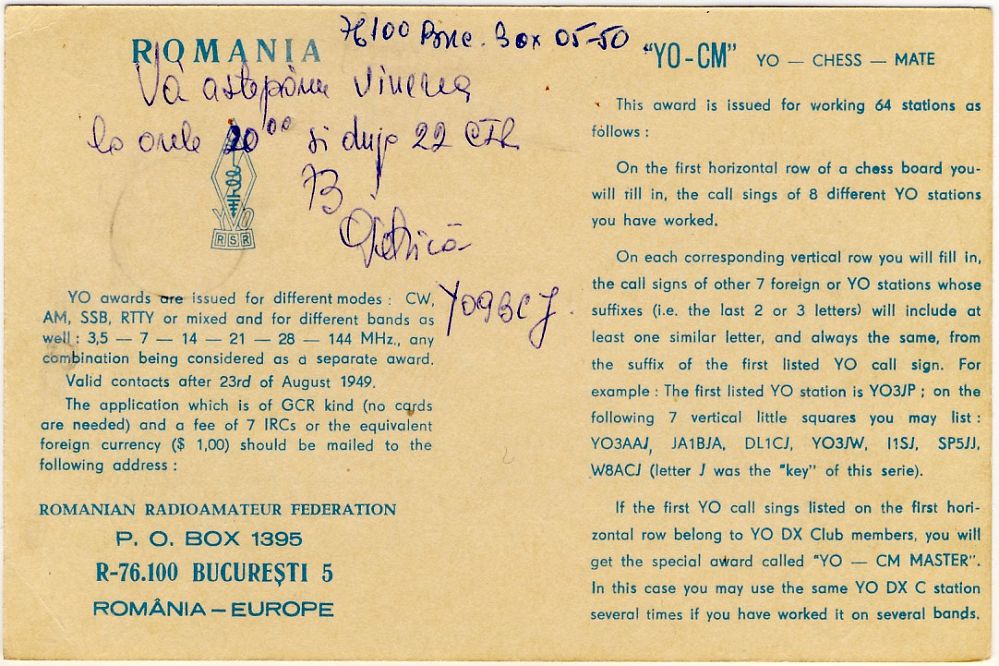 76100 Buc. Box 05-50
ROMANIA
Vă așteptăm vinerea
la orele 20⁰⁰ și după 22 CFR
73
Petrică
YO9BCJ
YO
RSR
YO awards are issued for different modes : CW,
AM, SSB, RTTY or mixed and for different bands as
well : 3,5 — 7 — 14 — 21 — 28 — 144 MHz., any
combination being considered as a separate award.
Valid contacts after 23rd of August 1949.
The application which is of GCR kind (no cards
are needed) and a fee of 7 IRCs or the equivalent
foreign currency ($ 1,00) should be mailed to the
following address :
ROMANIAN RADIOAMATEUR FEDERATION
P. O. BOX 1395
R-76.100 BUCUREȘTI 5
ROMÂNIA — EUROPE
"YO-CM" YO — CHESS — MATE
This award is issued for working 64 stations as
follows :
On the first horizontal row of a chess board you-
will rill in, the call sings of 8 different YO stations
you have worked.
On each corresponding vertical row you will fill in,
the call signs of other 7 foreign or YO stations whose
suffixes (i.e. the last 2 or 3 letters) will include at
least one similar letter, and always the same, from
the suffix of the first listed YO call sign. For
example : The first listed YO station is YO3JP ; on the
following 7 vertical little squares you may list :
YO3AAJ, JA1BJA, DL1CJ, YO3JW, I1SJ, SP5JJ,
W8ACJ (letter J was the "key" of this serie).
If the first YO call sings listed on the first hori-
zontal row belong to YO DX Club members, you will
get the special award called "YO — CM MASTER".
In this case you may use the same YO DX C station
several times if you have worked it on several bands.